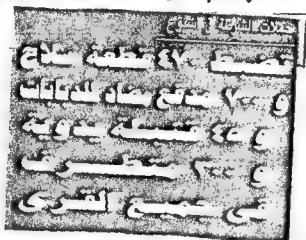 حملات الشرطة في الصعيد
تضبط ٤٧٠٠ قطعة سلاح
و ٧٠٠ مدافع مضاد للدبابات
و ٤٥ قنبلة يدوية
و ٢٠٠ متطرف
في جميع القرى